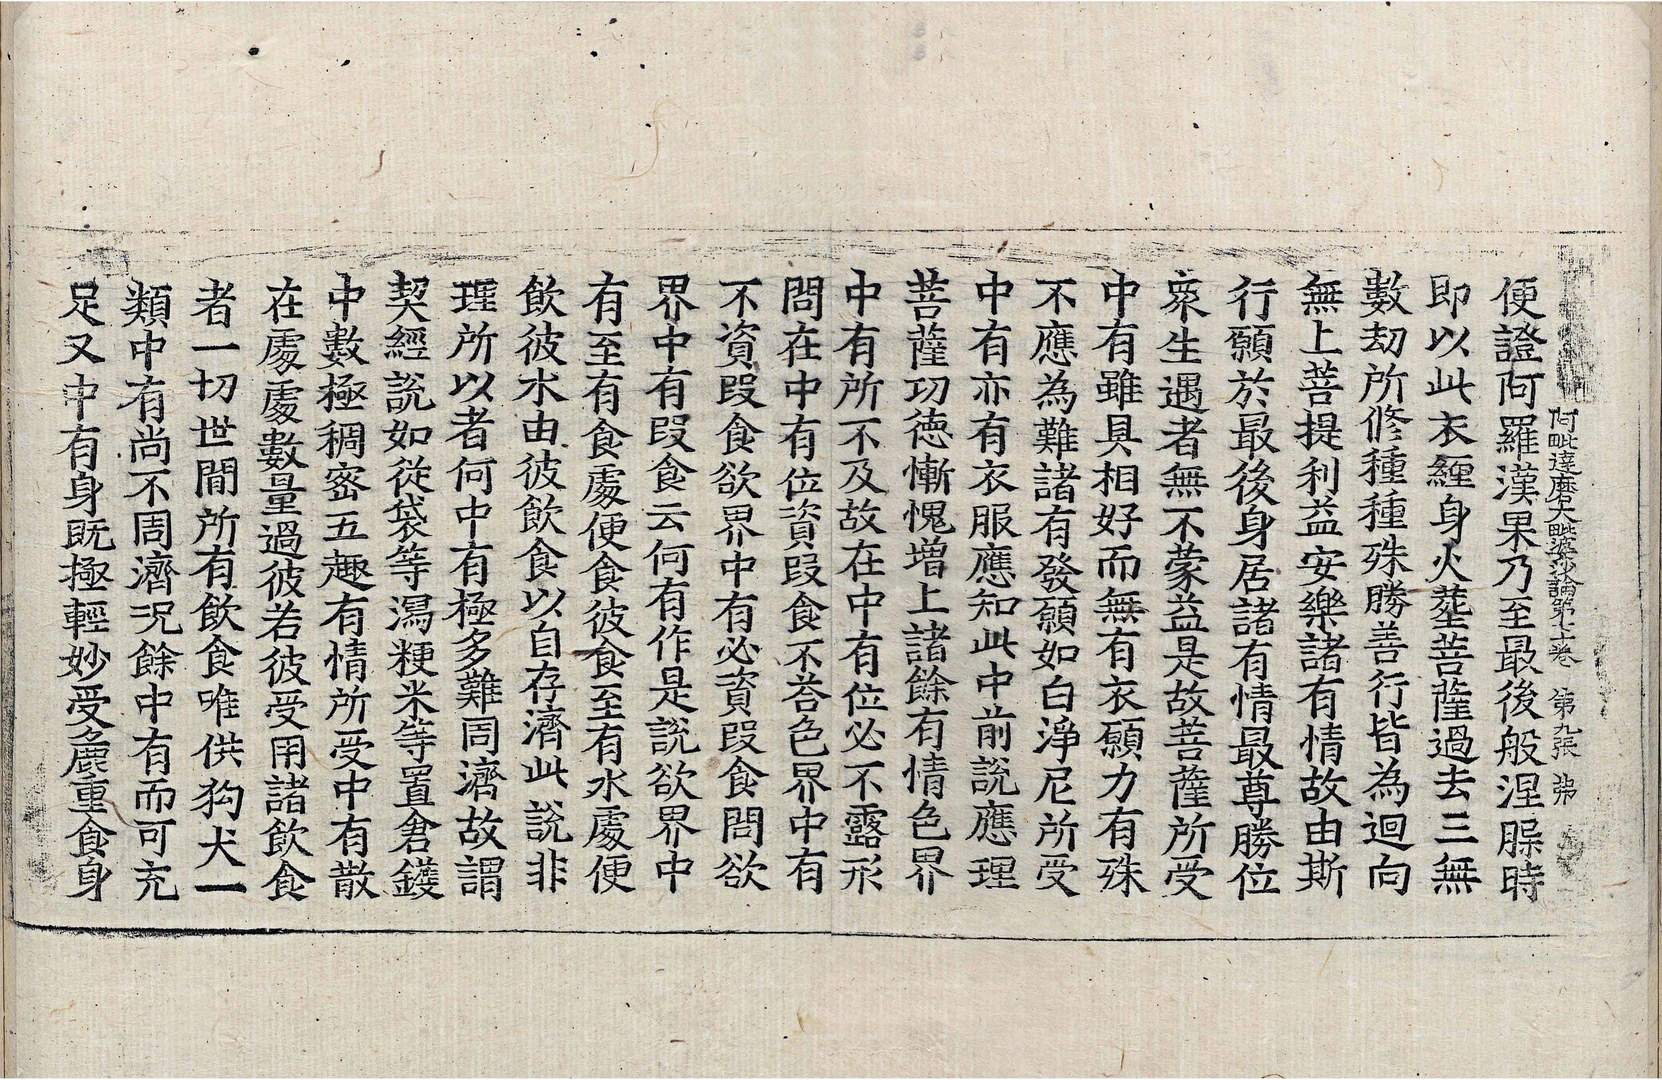 阿毗達磨大毗婆沙論第七十卷　第九張　弗
便證阿羅漢果乃至最後般涅槃時
即以此衣纏身火葬菩薩過去三無
數劫所修種種殊勝善行皆為迴向
無上菩提利益安樂諸有情故由斯
行願於最後身居諸有情最尊勝位
衆生遇者無不蒙益是故菩薩所受
中有雖具相好而無有衣願力有殊
不應為難諸有發願如白淨尼所受
中有亦有衣服應知此中前說應理
菩薩功德慚愧增上諸餘有情色界
中有所不及故在中有位必不露形
問在中有位資段食不荅色界中有
不資段食欲界中有必資段食問欲
界中有段食云何有作是說欲界中
有至有食處便食彼食至有水處便
飲彼水由彼飲食以自存濟此說非
理所以者何中有極多難周濟故謂
契經說如從袋等瀉粳米等置倉鑊
中數極稠密五趣有情所受中有散
在處處數量過彼若彼受用諸飲食
者一切世間所有飲食唯供狗犬一
類中有尚不周濟況餘中有而可充
足又中有身既極輕妙受麁重食身